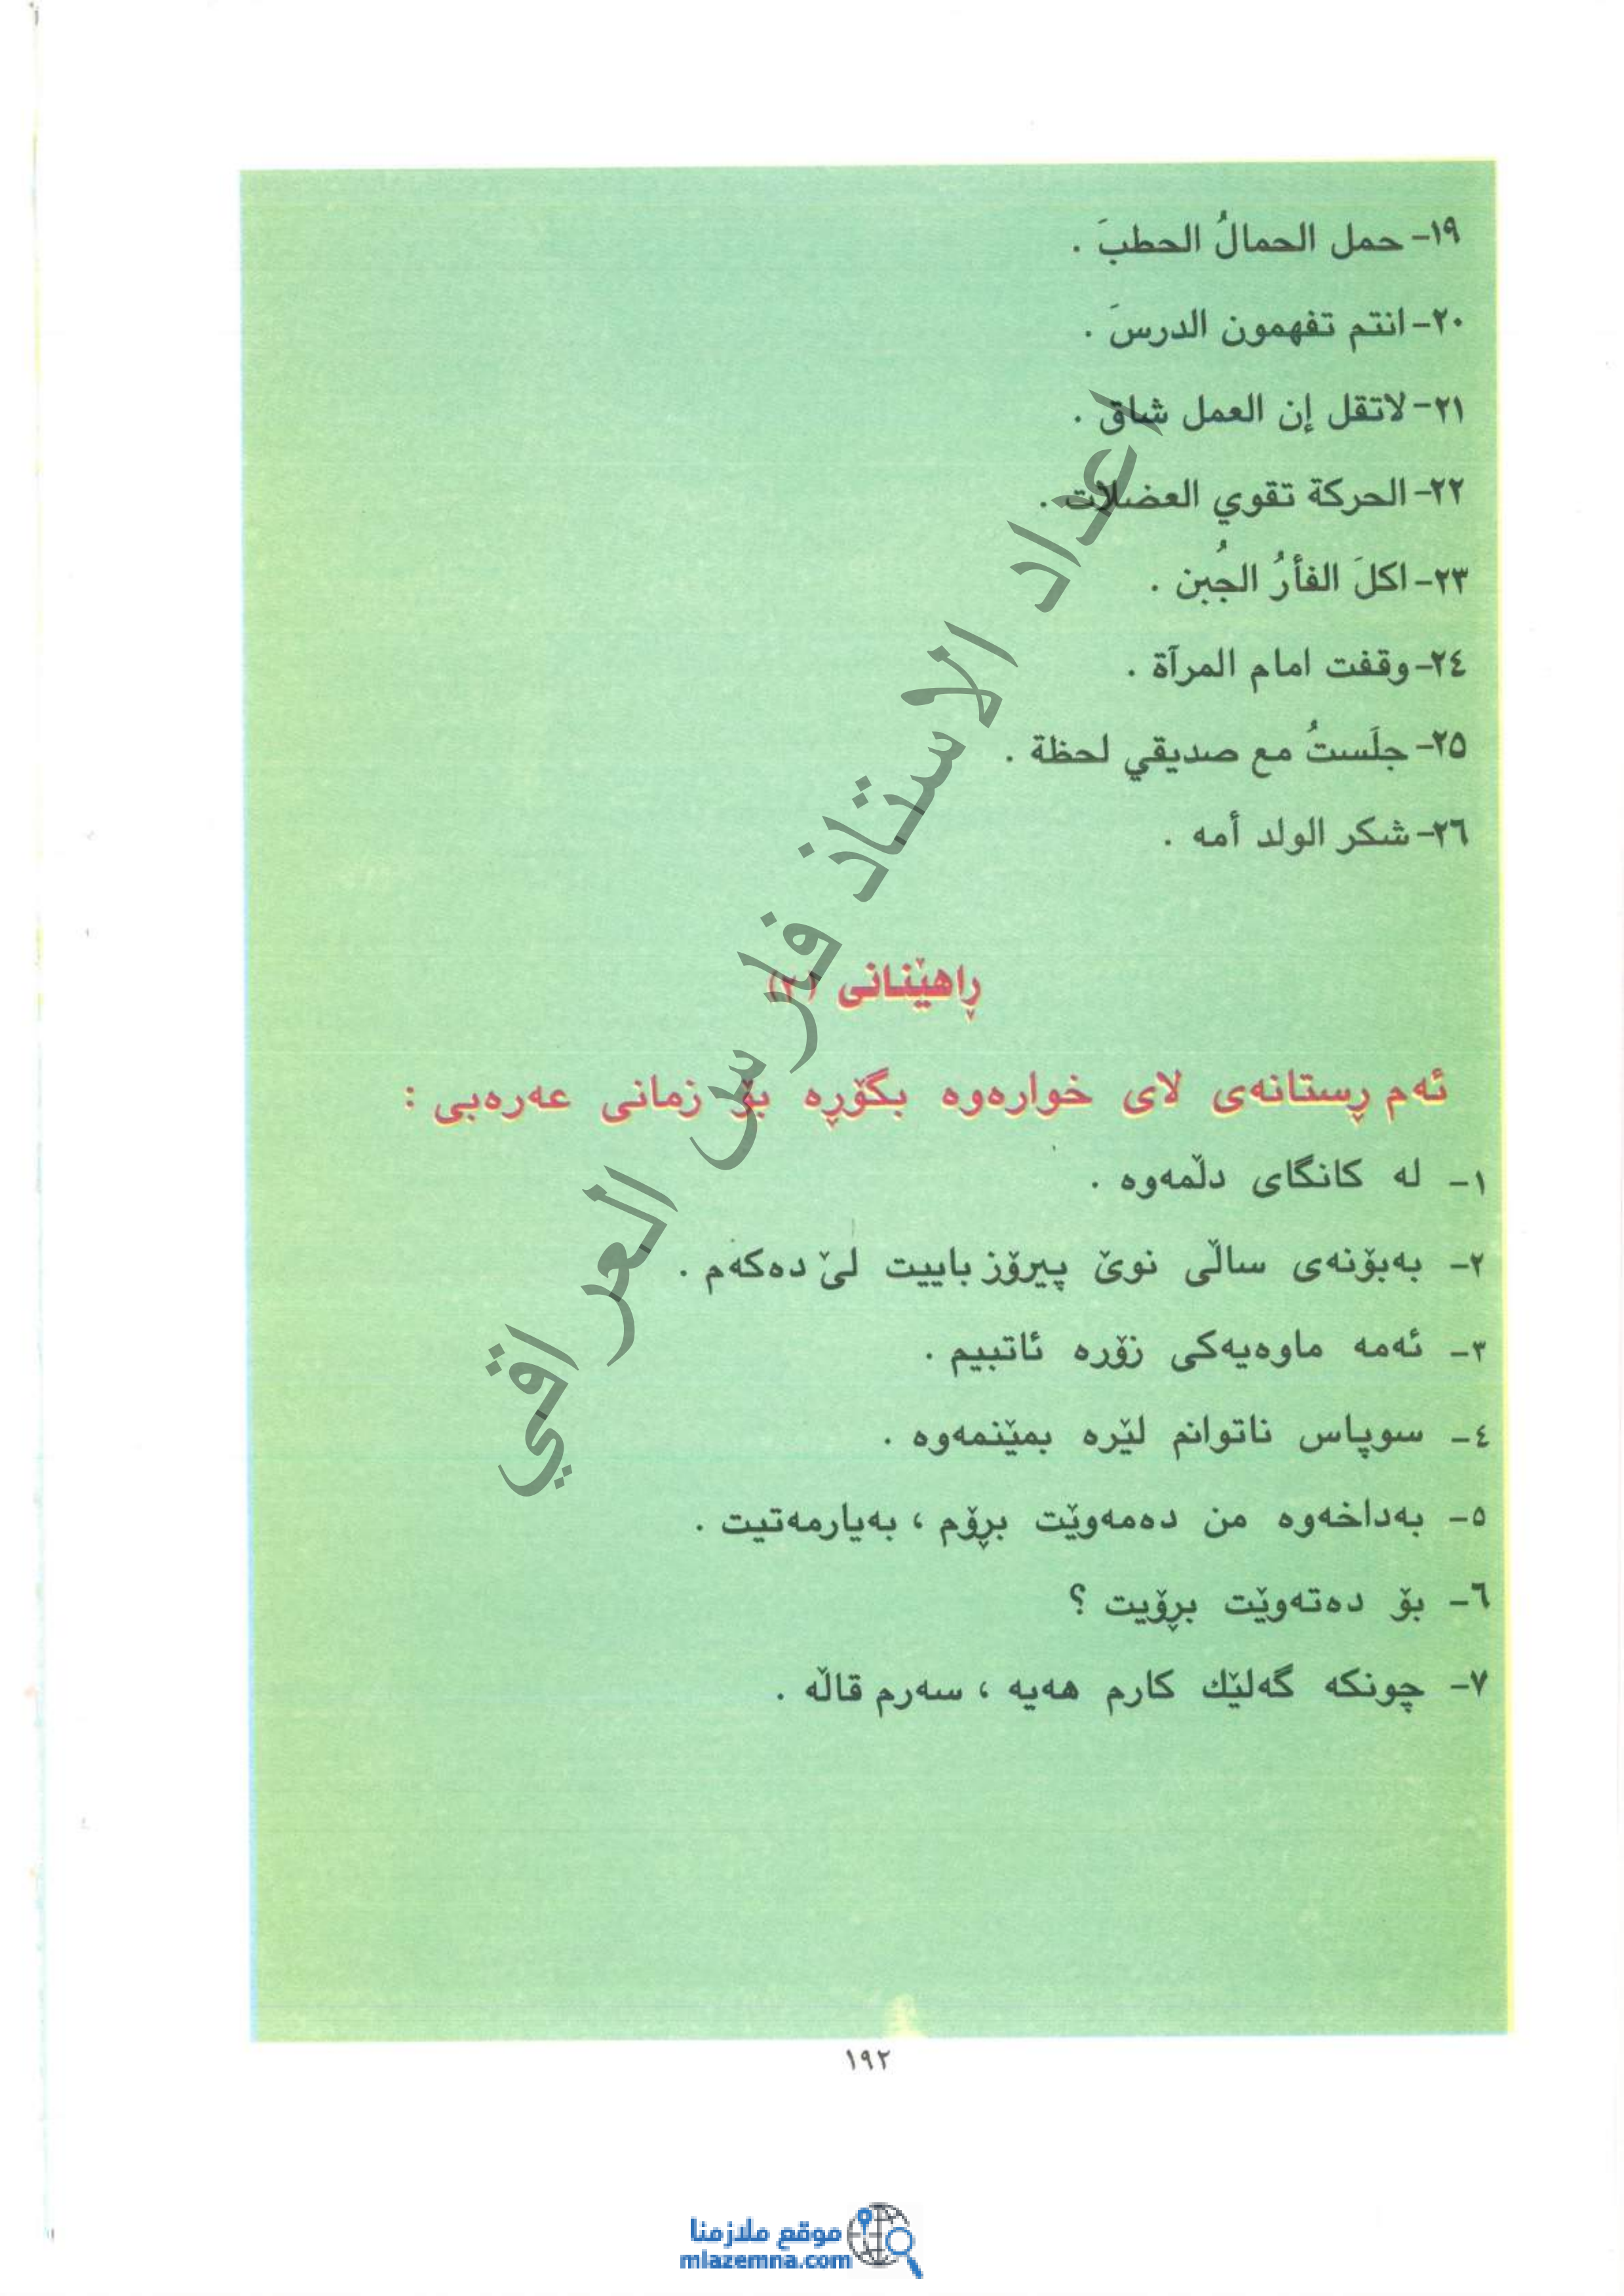 ١٩- حمل الحمالُ الحطبَ .
٢٠- انتم تفهمون الدرسَ .
٢١- لاتقل إن العمل شاق .
٢٢- الحركة تقوي العضلات .
٢٣- اكلَ الفأرُ الجُبن .
٢٤- وقفت امام المرآة .
٢٥- جلَستُ مع صديقي لحظة .
٢٦- شكر الولد أمه .
ڕاهێنانی (٢)
ئەم ڕستانەی لای خوارەوە بگۆڕە بۆ زمانی عەرەبی :
١- لە کانگای دڵمەوە .
٢- بەبۆنەی ساڵی نوێ پیرۆز باییت لێ دەکەم .
٣- ئەمە ماوەیەکی زۆرە ئاتبیم .
٤- سوپاس ناتوانم لێرە بمێنمەوە .
٥- بەداخەوە من دەمەوێت بڕۆم ، بەیارمەتیت .
٦- بۆ دەتەوێت بڕۆیت ؟
٧- چونکە گەلێك کارم هەیە ، سەرم قاڵە .
اعداد الاستاذ فارس العراقي
١٩٢
موقع ملازمنا
mlazemna.com